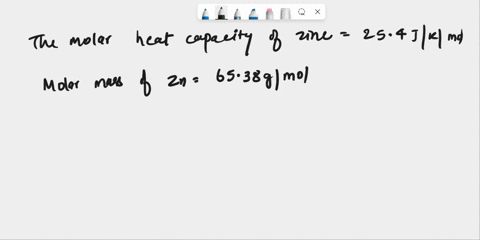 The molar heat capacity of zinc = 25.4 J/K/mol
Molar mass of Zn = 65.38g/mol